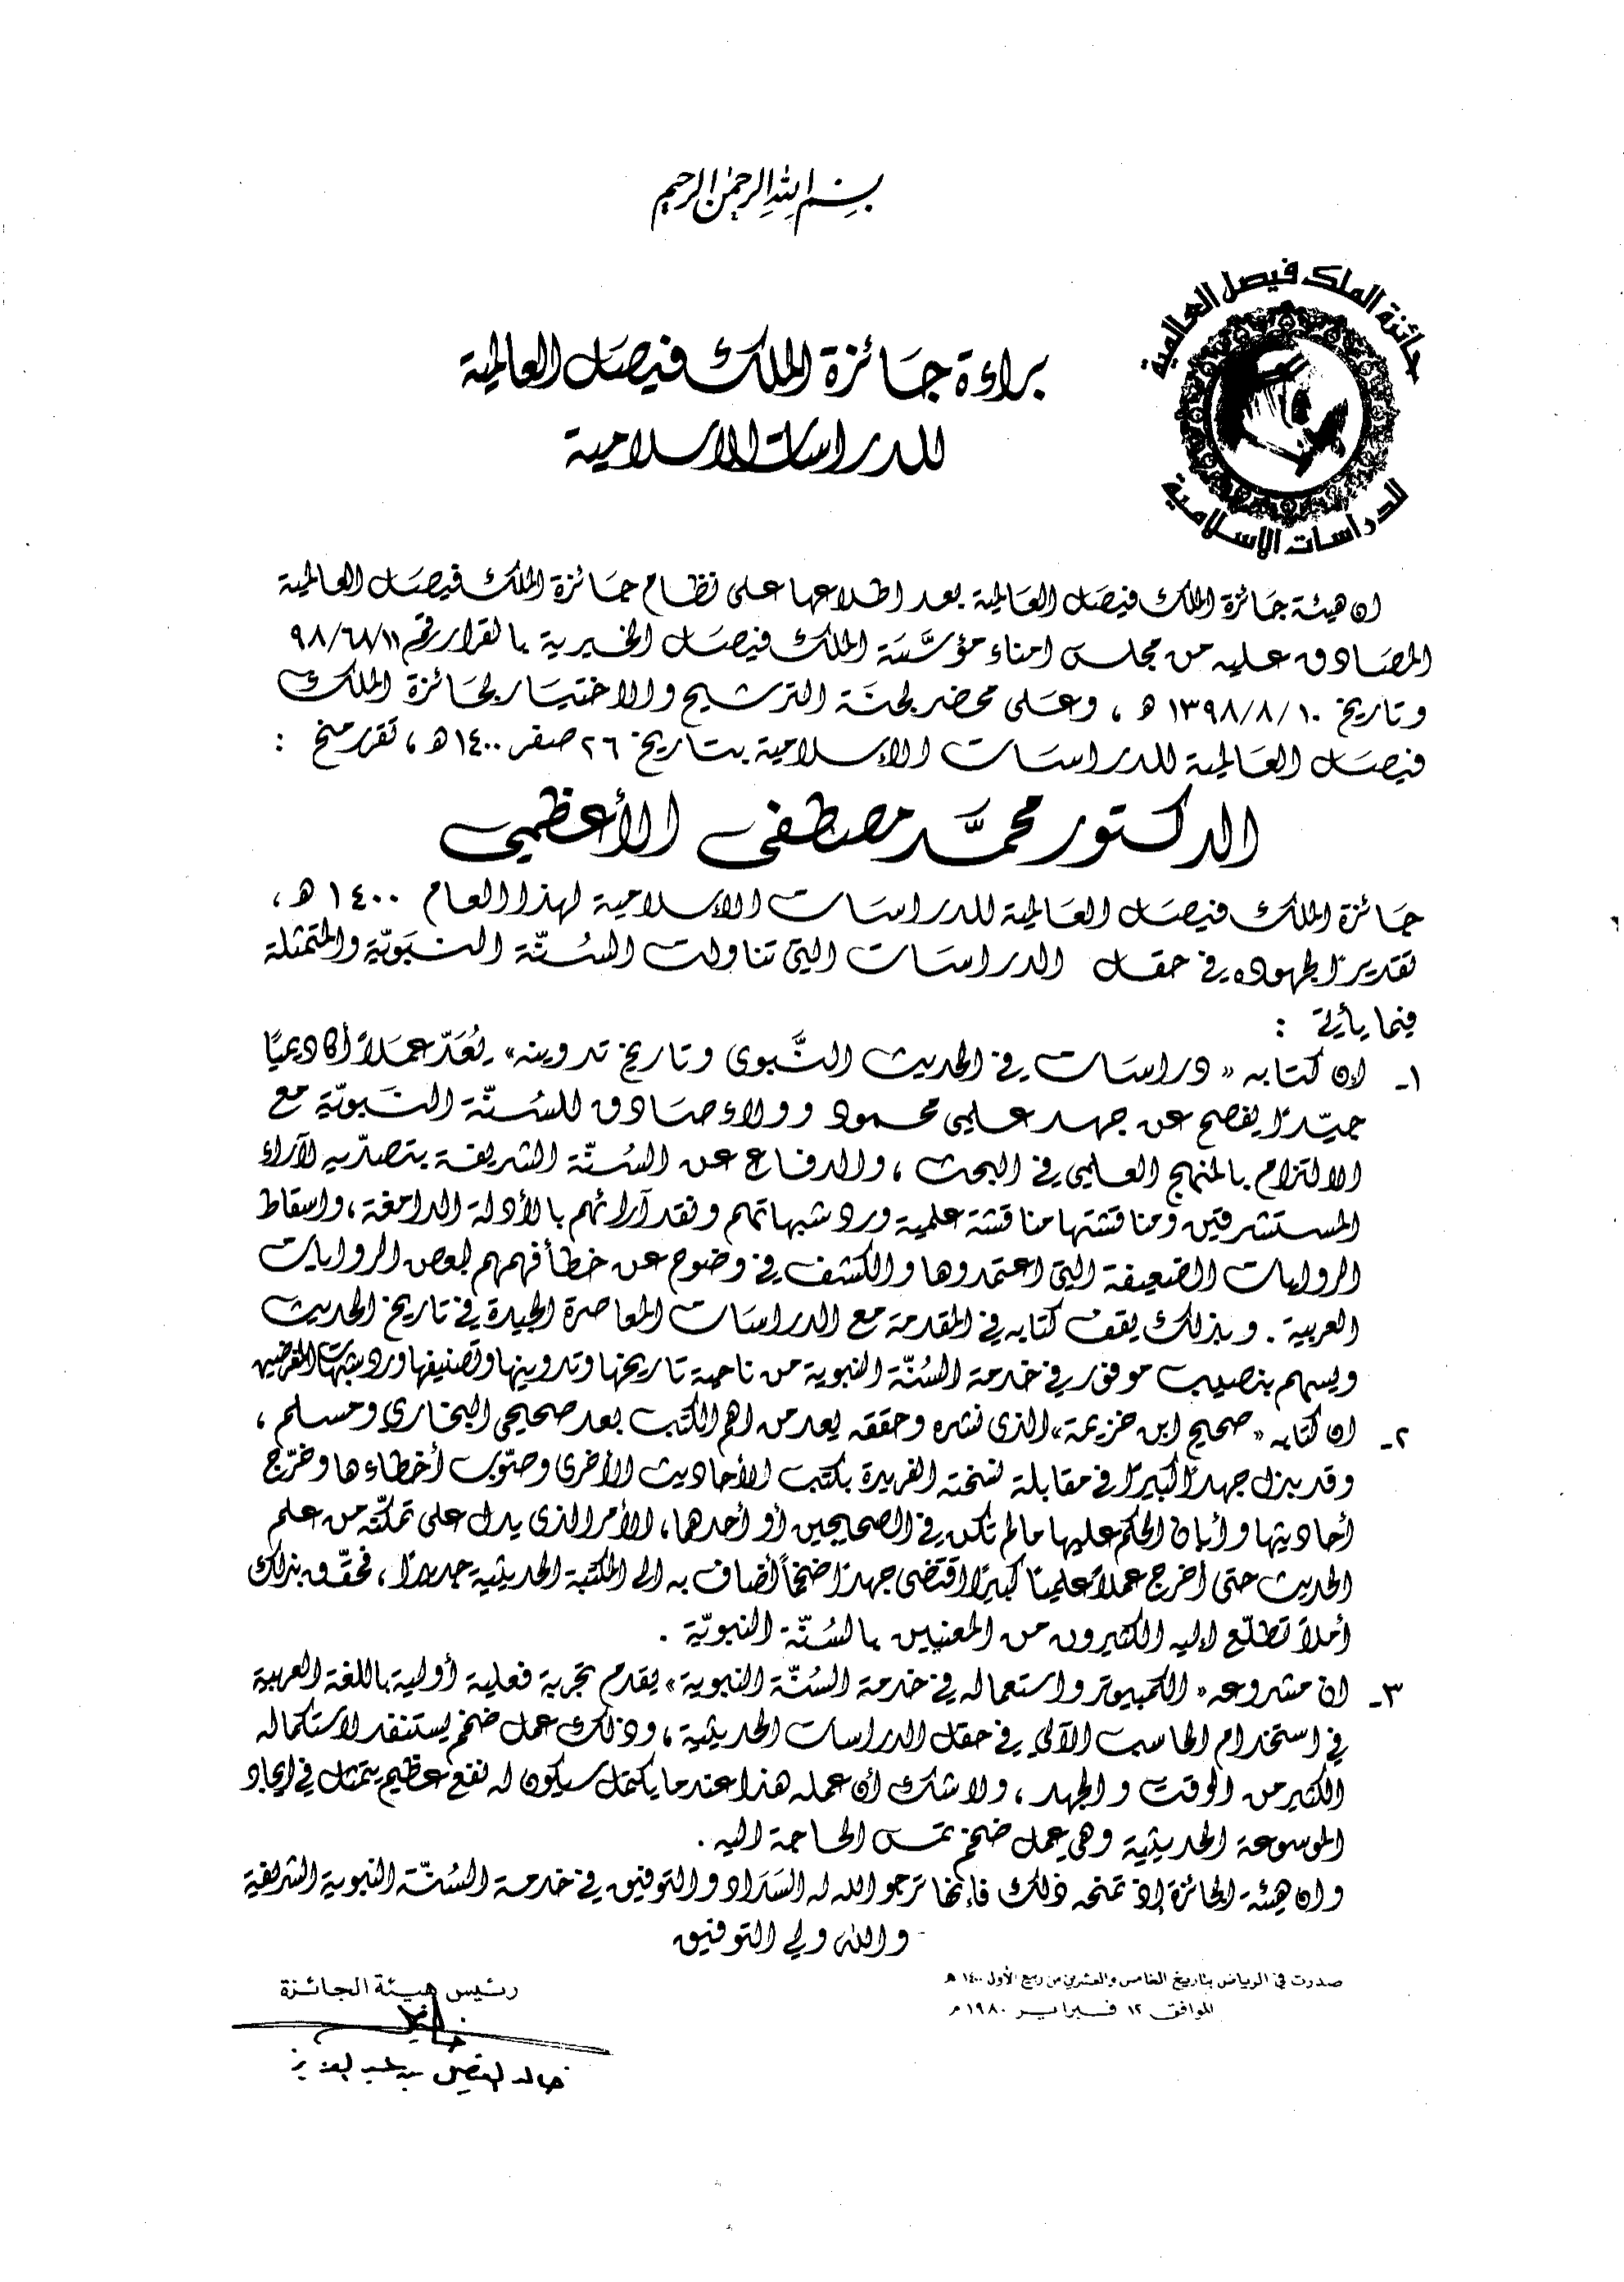 بسم الله الرحمن الرحيم
جائزة الملك فيصل العالمية
للدراسات الإسلامية
براءة جائزة الملك فيصل العالمية
للدراسات الاسلامية
ان هيئة جائزة الملك فيصل العالمية بعد اطلاعها على نظام جائزة الملك فيصل العالمية
المصادق عليه من مجلس امناء مؤسَّسَة الملك فيصل الخيرية بالقرار رقم ٩٨/٦٨/١١
وتاريخ ١٣٩٨/٨/١٠ هـ ، وعلى محضر لجنة الترشيح والاختيار لجائزة الملك
فيصل العالمية للدراسات الإسلامية بتاريخ ٢٦ صفر ١٤٠٠ هـ ، تقرر منح :
الدكتور محمَّد مصطفى الأعظمي
جائزة الملك فيصل العالمية للدراسات الإسلامية لهذا العام ١٤٠٠ هـ ،
تقديرًا لجهوده في حقل الدراسات التي تناولت السُنّة النبَويّة والمتمثلة
فيما يأتي :
١- إن كتابه « دراسات في الحديث النَّبوى وتاريخ تدوينه » يُعَدّ عمَلاً أكاديميًا
جيّدًا يفصح عن جهد علمي محمود وولاء صادق للسُنّة النبَويّة مع
الالتزام بالمنهج العلمي في البحث ، والدفاع عن السُنّة الشريفة بتصدّيه لآراء
المستشرقين ومناقشتها مناقشة علمية ورد شبهاتهم ونقد آرائهم بالأدلة الدامغة ، واسقاط
الروايات الضعيفة التي اعتمدوها والكشف في وضوح عن خطأ فهمهم لبعض الروايات
العربية . وبذلك يقف كتابه في المقدمة مع الدراسات المعاصرة الجيدة في تاريخ الحديث
ويسهم بنصيب موفور في خدمة السُنّة النبوية من ناحية تاريخها وتدوينها وتصنيفها ورد شبهات المغرضين
٢- ان كتابه « صحيح ابن خزيمة » الذى نشره وحققه يعد من اهم الكتب بعد صحيحي البخاري ومسلم ،
وقد بذل جهدًا كبيرًا في مقابلة نسخته الفريدة بكتب الأحاديث الأخرى وصوّب أخطاءها وخرّج
أحاديثها وأبان الحكم عليها مالم تكن في الصحيحين أو أحدها ، الأمر الذى يدل على تمكنّه من علم
الحديث حتى اخرج عملاً علميًا كبيرًا اقتضى جهدًا ضخمًا أضاف به الى المكتبة الحديثية جديدًا ، فحقّق بذلك
أملاً تطلّع إليه الكثيرون من المعنيين بالسُنّة النبويّة .
٣- ان مشروعه « الكمبيوتر واستعماله في خدمة السُنّة النبوية » يقدم تجربة فعلية أولية باللغة العربية
في استخدام الحاسب الآلي في حقل الدراسات الحديثية ، وذلك عمل ضخم يستنفد لاستكماله
الكثير من الوقت والجهد ، ولا شك أن عمله هذا عندما يكتمل سيكون له نفع عظيم يتمثل في ايجاد
الموسوعة الحديثية وهي عمل ضخم تمس الحاجة اليه .
وان هيئة الجائزة إذ تمنحه ذلك فإنها ترجو الله له السَدَاد والتوفيق في خدمة السُنّة النبوية الشريفة
والله ولي التوفيق
صدرت في الرياض بتاريخ الخامس والعشرين من ربيع الأول ١٤٠٠ هـ
الموافق ١٢ فبراير ١٩٨٠ م
رئيس هيئة الجائزة
خالد الفيصل بن عبد العزيز